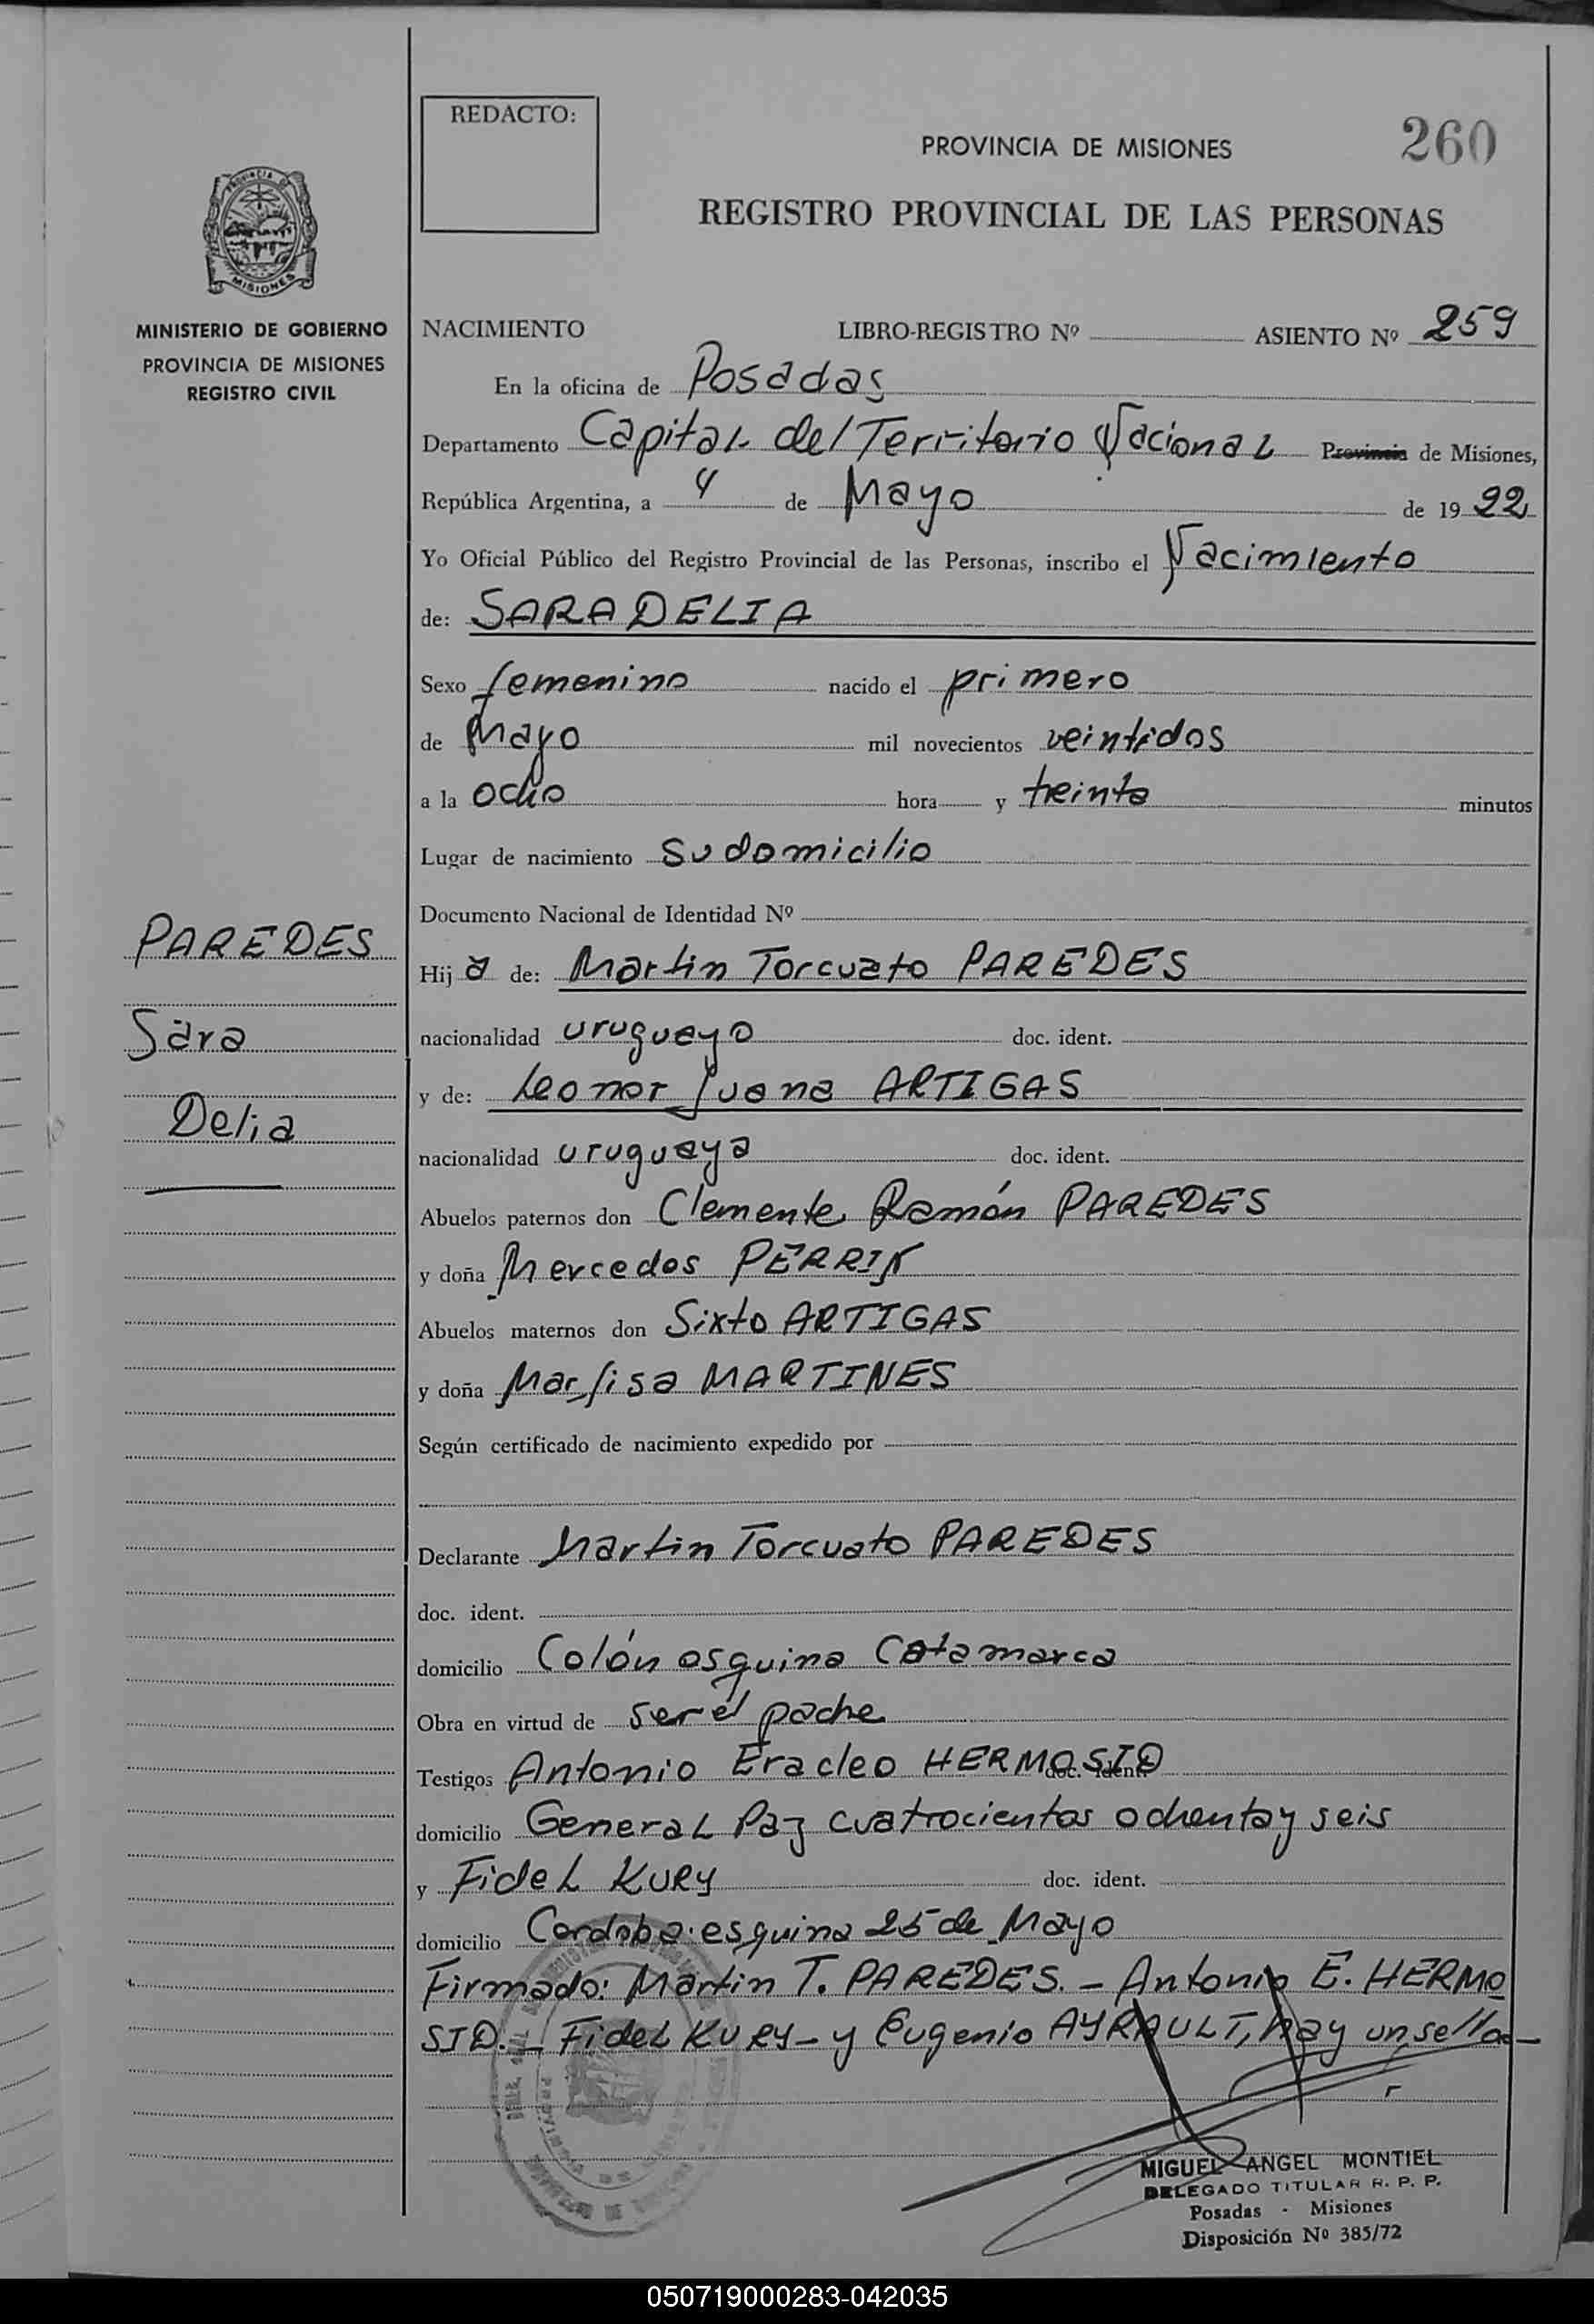 REDACTO:
260
PROVINCIA DE MISIONES
REGISTRO PROVINCIAL DE LAS PERSONAS
PROVINCIA DE
MISIONES
MINISTERIO DE GOBIERNO
PROVINCIA DE MISIONES
REGISTRO CIVIL
NACIMIENTO LIBRO-REGISTRO Nº ASIENTO Nº 259
En la oficina de Posadas
Departamento Capital del Territorio Nacional Provincia de Misiones,
República Argentina, a 4 de Mayo de 1922
Yo Oficial Público del Registro Provincial de las Personas, inscribo el Nacimiento
de: SARA DELIA
Sexo femenino nacido el primero
de Mayo mil novecientos veintidos
a la ocho hora y treinta minutos
Lugar de nacimiento su domicilio
Documento Nacional de Identidad Nº
PAREDES
Sara
Delia
Hija de: Martin Torcuato PAREDES
nacionalidad uruguayo doc. ident.
y de: Leonor Juana ARTIGAS
nacionalidad uruguaya doc. ident.
Abuelos paternos don Clemente Ramón PAREDES
y doña Mercedes PERRIN
Abuelos maternos don Sixto ARTIGAS
y doña Marfisa MARTINES
Según certificado de nacimiento expedido por
Declarante Martin Torcuato PAREDES
doc. ident.
domicilio Colón esquina Catamarca
Obra en virtud de ser el padre
Testigos Antonio Eracleo HERMOSID doc. ident.
domicilio General Paz cuatrocientos ochenta y seis
y Fidel KURY doc. ident.
domicilio Cordoba esquina 25 de Mayo
Firmado: Martin T. PAREDES. - Antonio E. HERMO
SID. - Fidel KURY - y Eugenio AYRAULT, hay un sello -
MIGUEL ANGEL MONTIEL
DELEGADO TITULAR R. P. P.
Posadas - Misiones
Disposición Nº 385/72
050719000283-042035